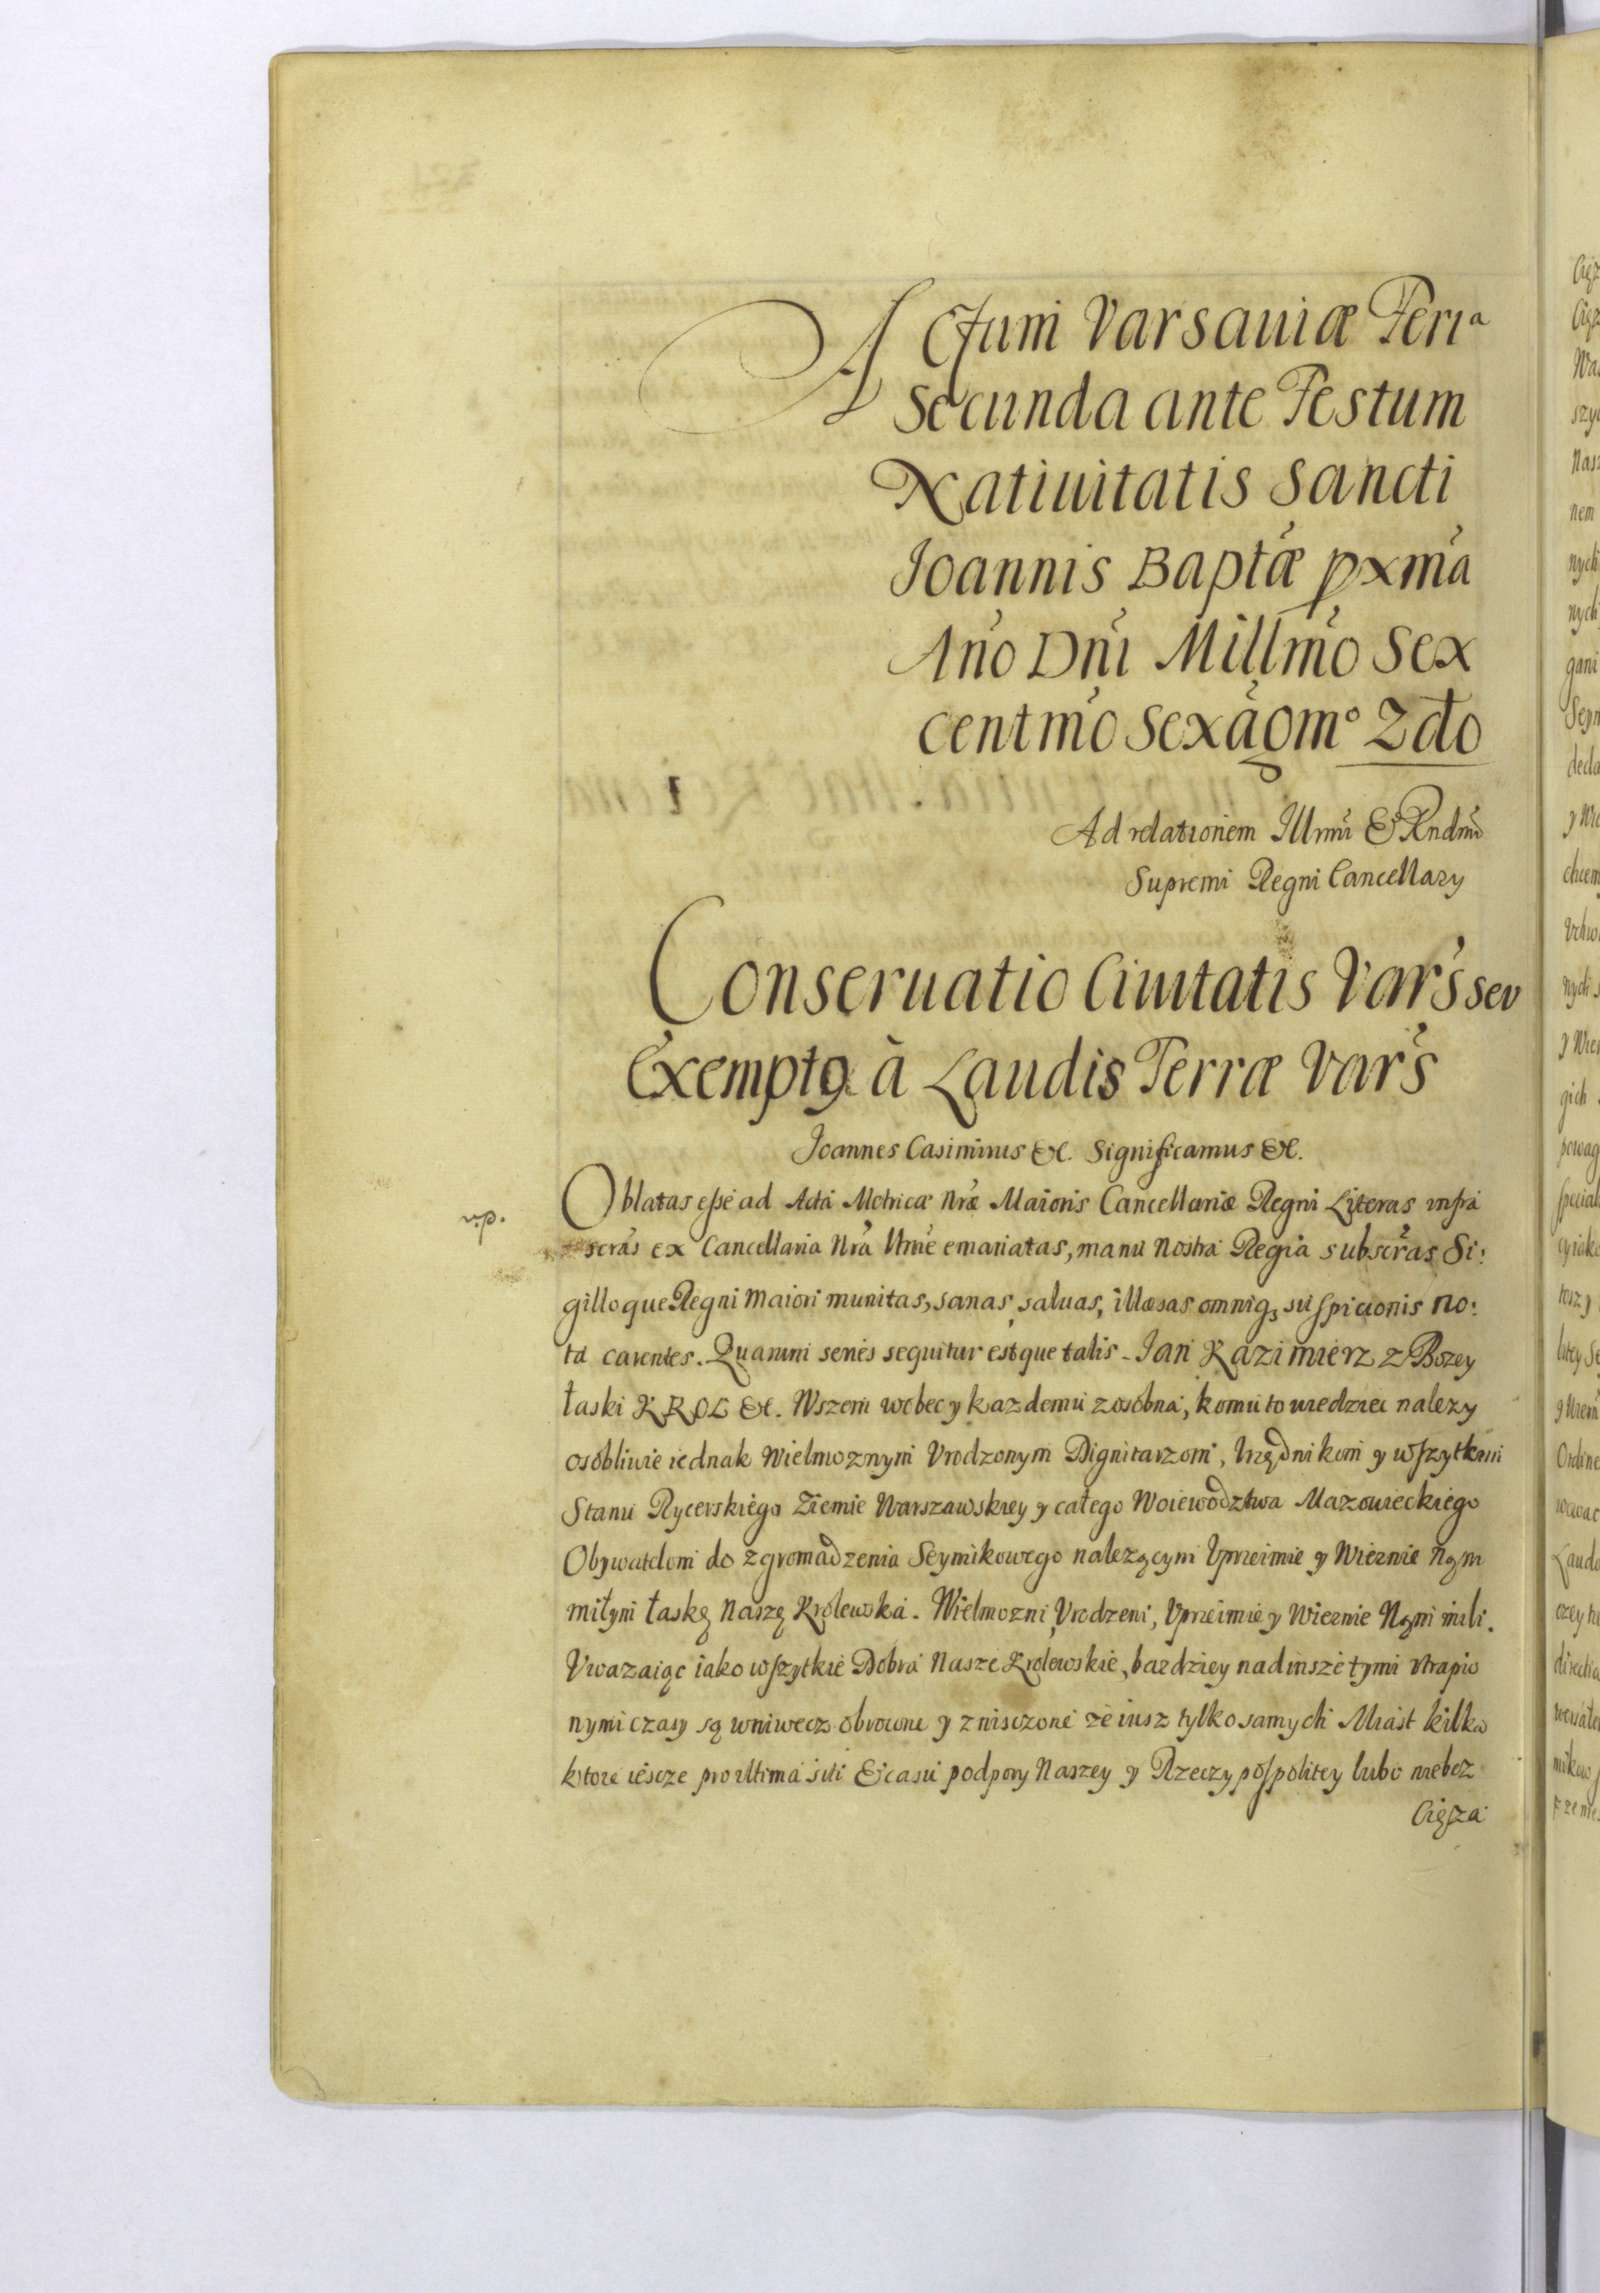 Actum Varsauiæ Feria
Secunda ante Festum
Natiuitatis Sancti
Joannis Baptæ pxma
Ano Dni Millmo Sex
centmo Sexagmo 2do
Ad relationem Illmi & Rndmi
Supremi Regni Cancellary
Conseruatio Ciuitatis Vars seu
Exemptio à Laudis Terræ Vars
Joannes Casimirus &c. Significamus &c.
Oblatas esse ad Acta Metricæ Nræ Maioris Cancellariæ Regni Literas infra
scras ex Cancellaria Nra emanatas, manu Nostra Regia subscras Si:
gilloque Regni Maiori munitas, sanas, saluas, illæsas omniq3 suspicionis no:
ta carentes. Quarum series sequitur estque talis - Jan Kazimierz z Bozey
łaski KROL &c. Wszem wobec y kazdemu zosobna, komu to wiedziec nalezy
osobliwie iednak Wielmoznym Vrodzonym Dignitarzom, Vrzędnikom y wszytkim
Stanu Rycerskiego Ziemie Warszawskiey y całego Woiewodztwa Mazowieckiego
Obywatelom do zgromadzenia Seymikowego nalezącym Vprzeimie y Wiernie Nąm
miłym łaskę Naszę Krolewską. Wielmozni, Vrodzeni, Vprzeimie y Wiernie Nąm mili.
Vwazaiąc iako wszytkie Dobra Nasze Krolewskie, bardziey nad insze tymi vtrapio
nymi czasy są wniwecz obrocone y znisczone ze iusz tylko samych Miast kilka
ktore iescze pro vltima siti & casu podpory Naszey y Rzeczypospolitey lubo niebez
Cięsza